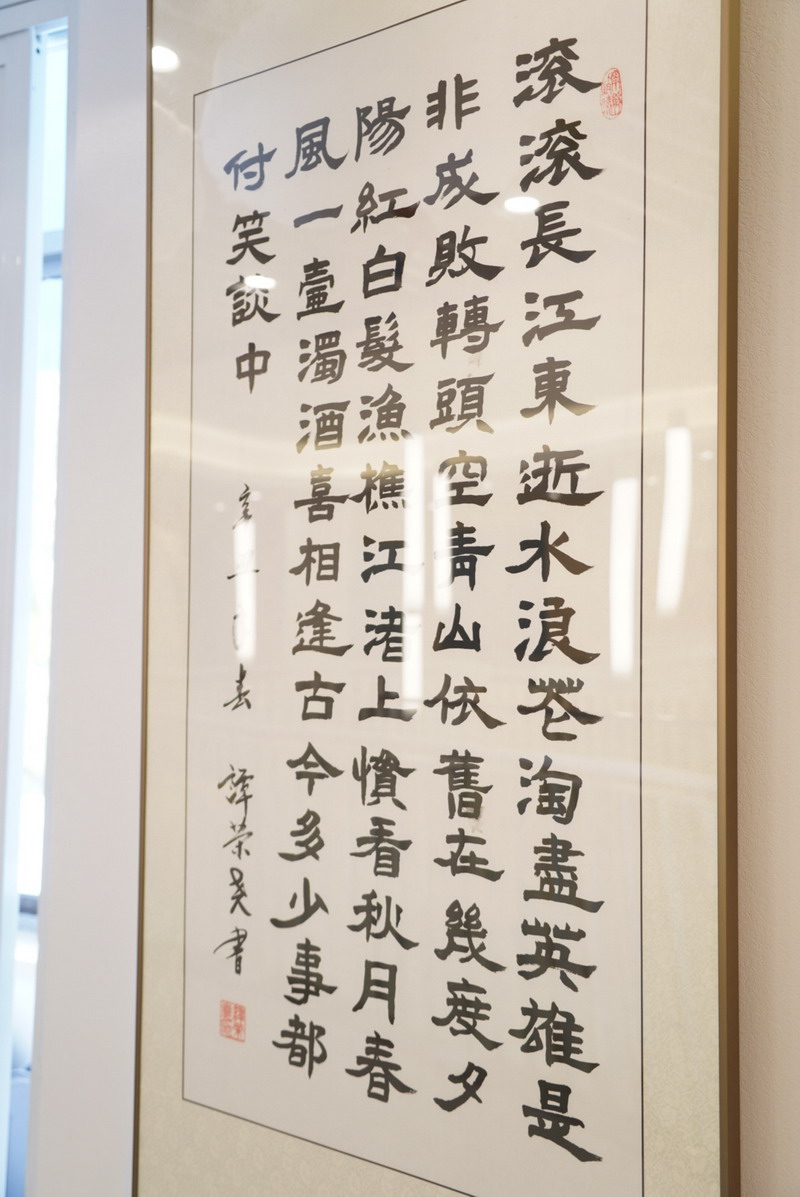 滾滾長江東逝水浪花淘盡英雄是
非成敗轉頭空青山依舊在幾度夕
陽紅白髮漁樵江渚上慣看秋月春
風一壺濁酒喜相逢古今多少事都
付笑談中
春 譚榮光書